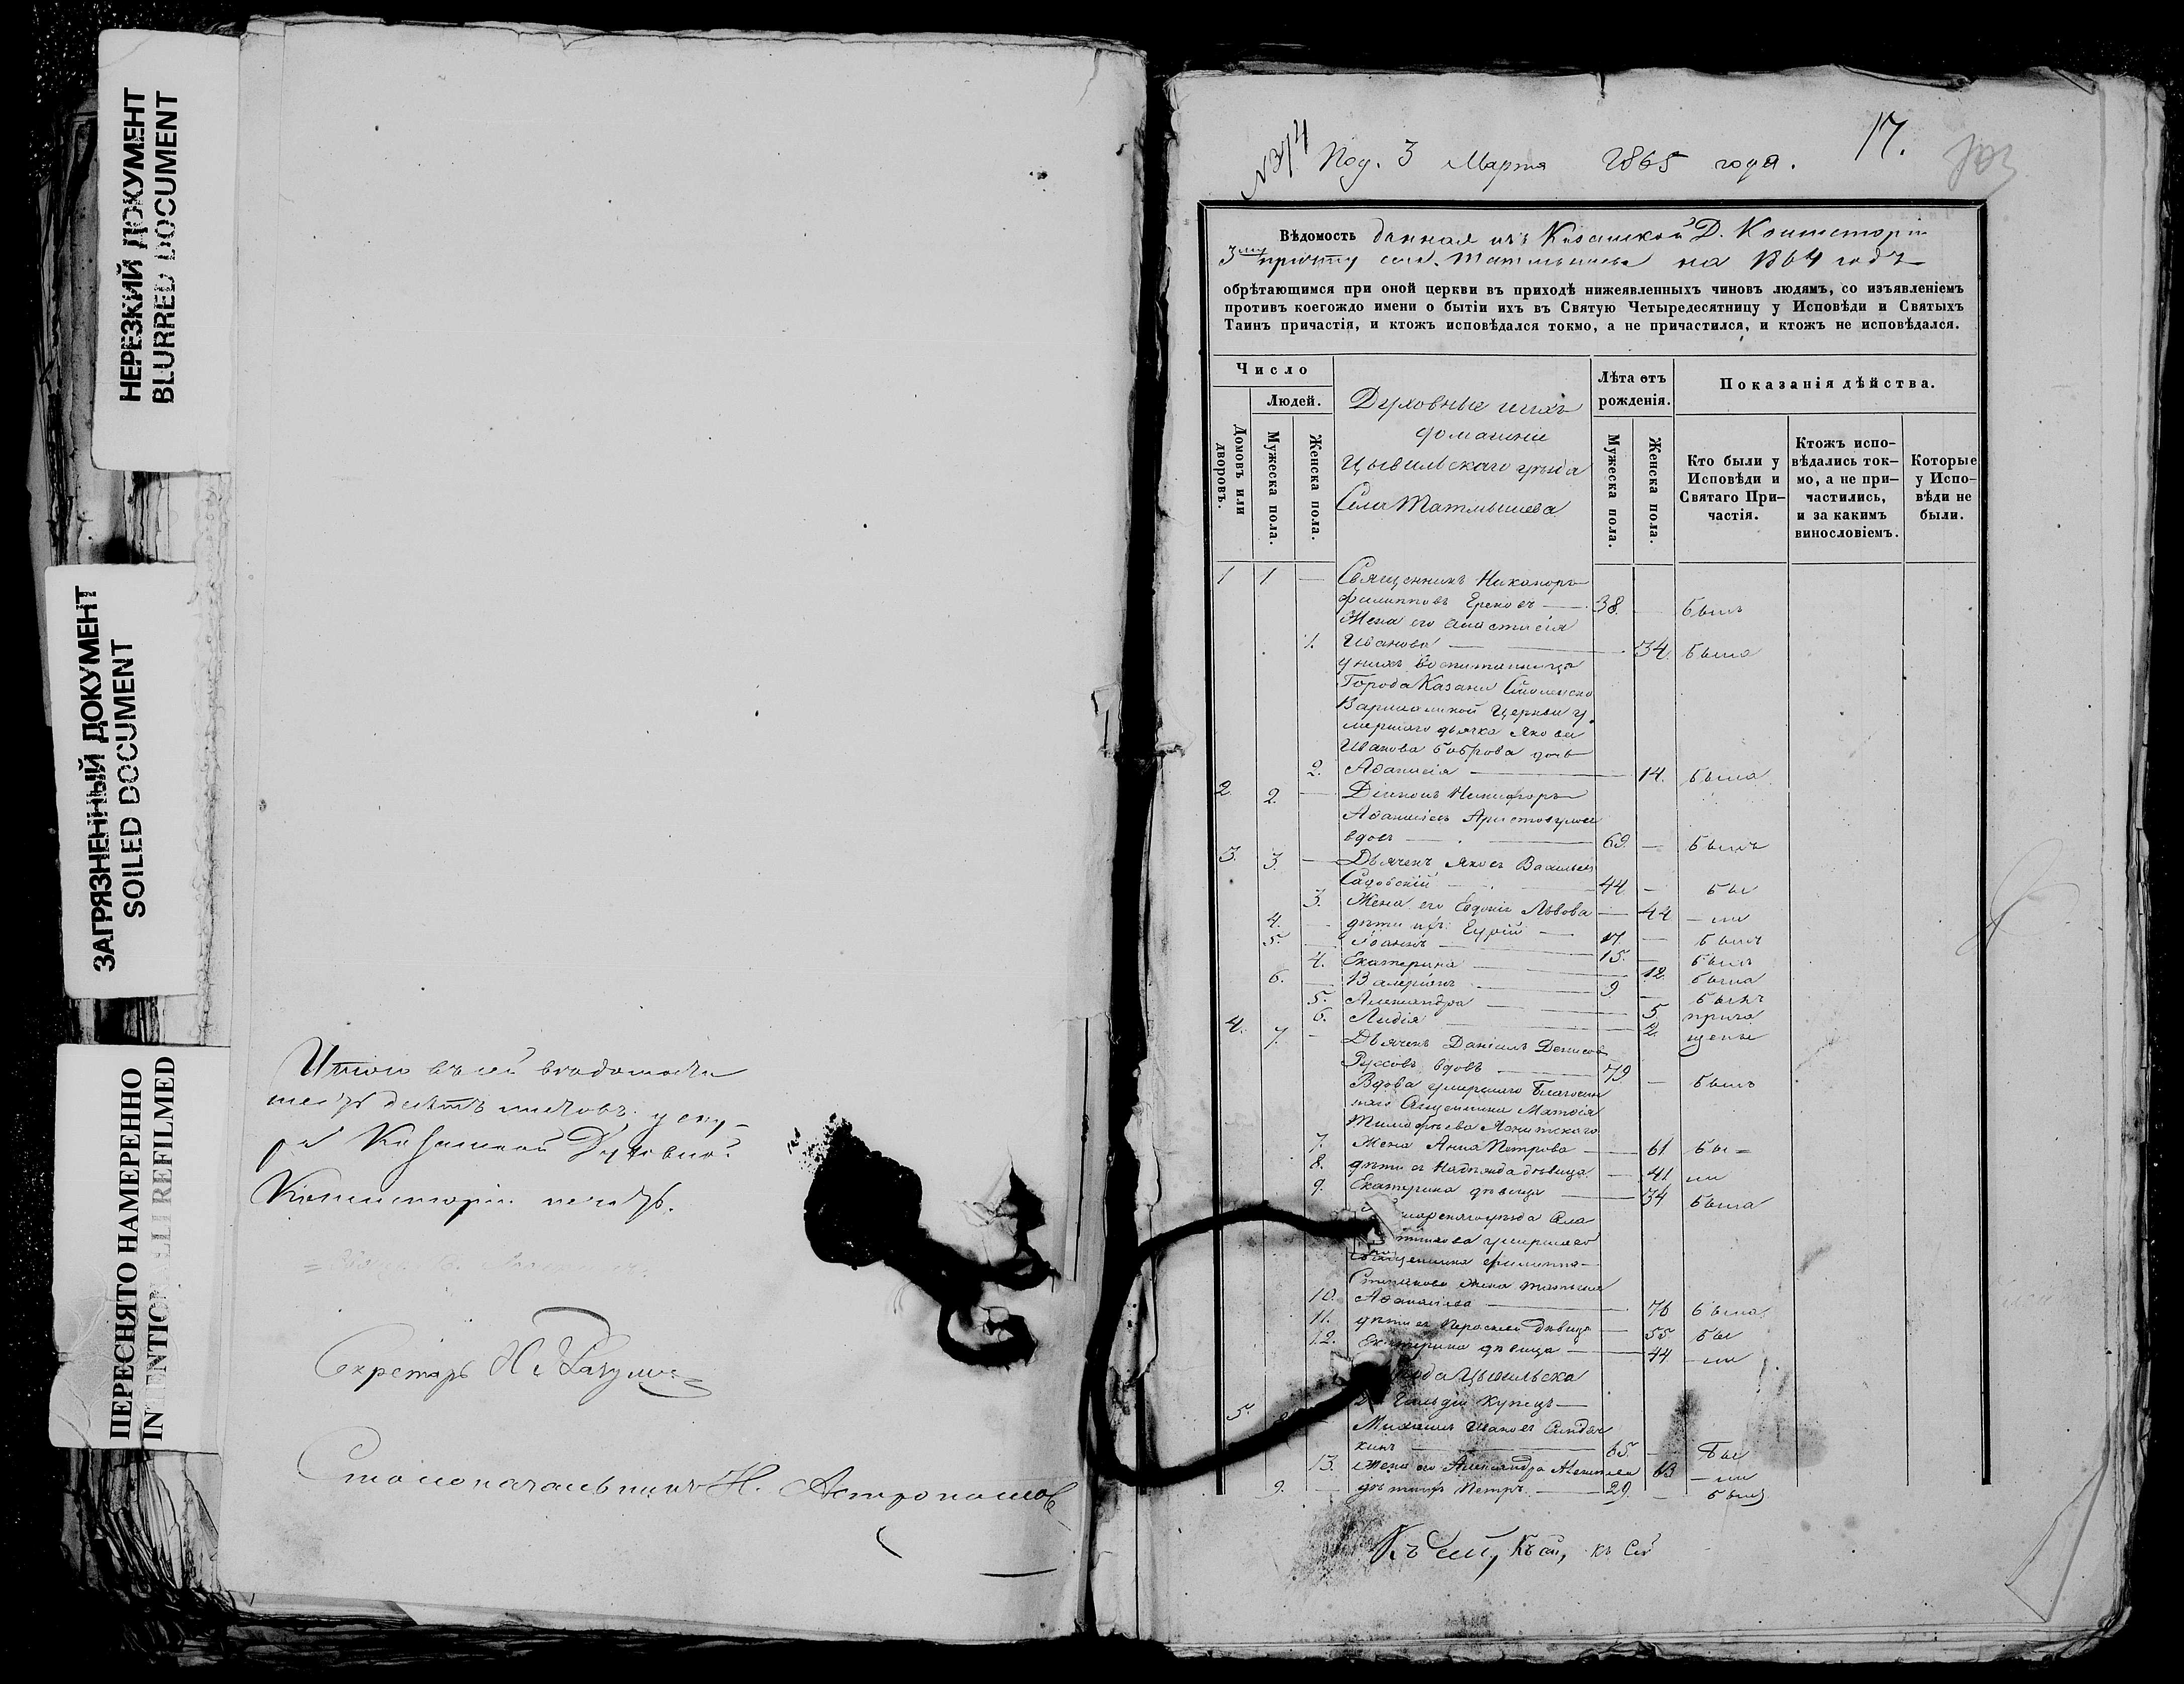 НЕРЕЗКИЙ ДОКУМЕНТ
BLURRED DOCUMENT
ЗАГРЯЗНЕННЫЙ ДОКУМЕНТ
SOILED DOCUMENT
ПЕРЕСНЯТО НАМЕРЕННО
INTENTIONALLI REFILMED
Итого въ сей ведомости
листовъ у ску-
Казанской Духовной
Консисторіи печать.
Секретарь Н.
Столоначальникъ Н. Астрономов
№374
Под. 3 Марта 1865 года.
17.
103
Вѣдомость данная изъ Казанской Д. Консисторіи
3му причту сел. Татмышева на 1864 годъ
обрѣтающимся при оной церкви въ приходѣ нижеявленныхъ чиновъ людямъ, со изъявленіемъ
противъ коегождо имени о бытіи ихъ въ Святую Четыредесятницу у Исповѣди и Святыхъ
Таинъ причастія, и ктожъ исповѣдался токмо, а не причастился, и ктожъ не исповѣдался.
Число
Людей.
Домовъ или дворовъ.
Мужеска пола.
Женска пола.
Духовные и ихъ
домашніе
Цывильскаго уѣзда
Села Татмышева
Лѣта отъ рожденія.
Мужеска пола.
Женска пола.
Показанія дѣйства.
Кто были у Исповѣди и Святаго При-частія.
Ктожъ испо-вѣдались ток-мо, а не при-частились, и за какимъ винословіемъ.
Которые у Испо-вѣди не были.
1 1 — Священникъ Никаноръ
Филипповъ — 38. — былъ
Жена его Анастасія
1. Иванова — 34. была
у нихъ воспитанница
Города Казани Смоленско
Варламской Церкви у
мершаго дьячка Якова
Иванова Боброва дочь
2. Афанасія — 14. была
2. 2. — Діаконъ Никифоръ
Афанасіевъ Аристовулов
вдовъ — 69. — былъ
3. 3. — Дьячекъ Яковъ Васильев
Садовскій — 44 — бы
3. Жена его Евдокія Львова — 44 — ли
4. — дѣти ихъ: — 17. — былъ
5. — Іоаннъ — 15. — былъ
4. Екатерина — 12. была
6. — Валеріанъ — 9 — былъ
5. Александра — 5 прича
6. Лидія — 2. щены
4. 7. — Дьячекъ Даніилъ Денисов
вдовъ — 79. — былъ
Вдова умершаго Благочин
наго Священника Матѳія
Тимофѣева
7. Жена Анна Петрова — 61 бы=
8. дѣти ея Надежда дѣвица — 41 ли
9. Екатерина дѣвица — 34 была
уѣзда Села
умершаго
Священника Филиппа
Степанова жена Татьяна
10. Афанасьева — 76 была
11. дѣти ея Параскева дѣвица — 55 бы
12. Екатерина дѣвица — 44 — ли
Города Цывильска
Гильдіи Купецъ
5. Михаилъ Ивановъ
кинъ — 65. — Бы
13. Жена его Александра — 63 — ли
9. — дѣти ихъ Петръ — 29. — былъ
Къ сей, къ сей, къ сей